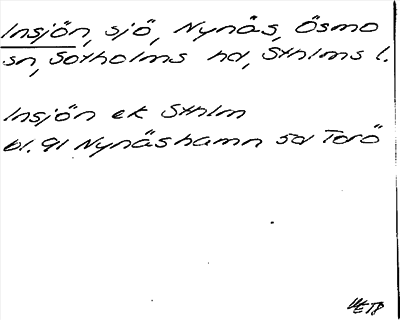 Insjön, sjö, Nynäs, Ösmo
sn, Sotholms hd, Sthlms l.
Insjön ek Sthlm
bl. 91 Nynäshamn sd Torö